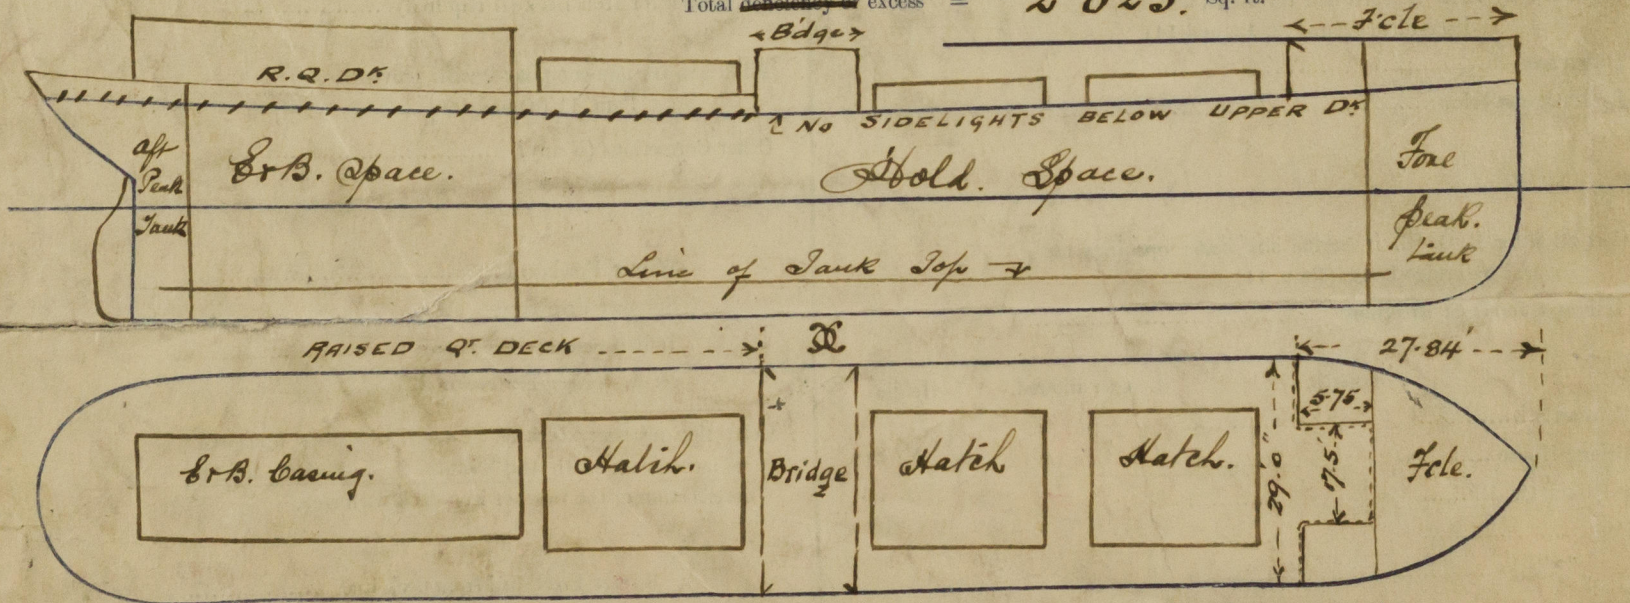 Total deficiency or excess = 2025. Sq. ft.
Bdge
Fcle
R.Q.Dk
No SIDELIGHTS BELOW UPPER Dk
Aft
Peak
Tank
E&B. Space.
Hold. Space.
Fore
peak.
tank
Line of Tank Top
RAISED QT. DECK
27.84'
5.75
E&B. Casing.
Hatch.
Bridge
Hatch
Hatch.
29.0"
17.5'
Fcle.